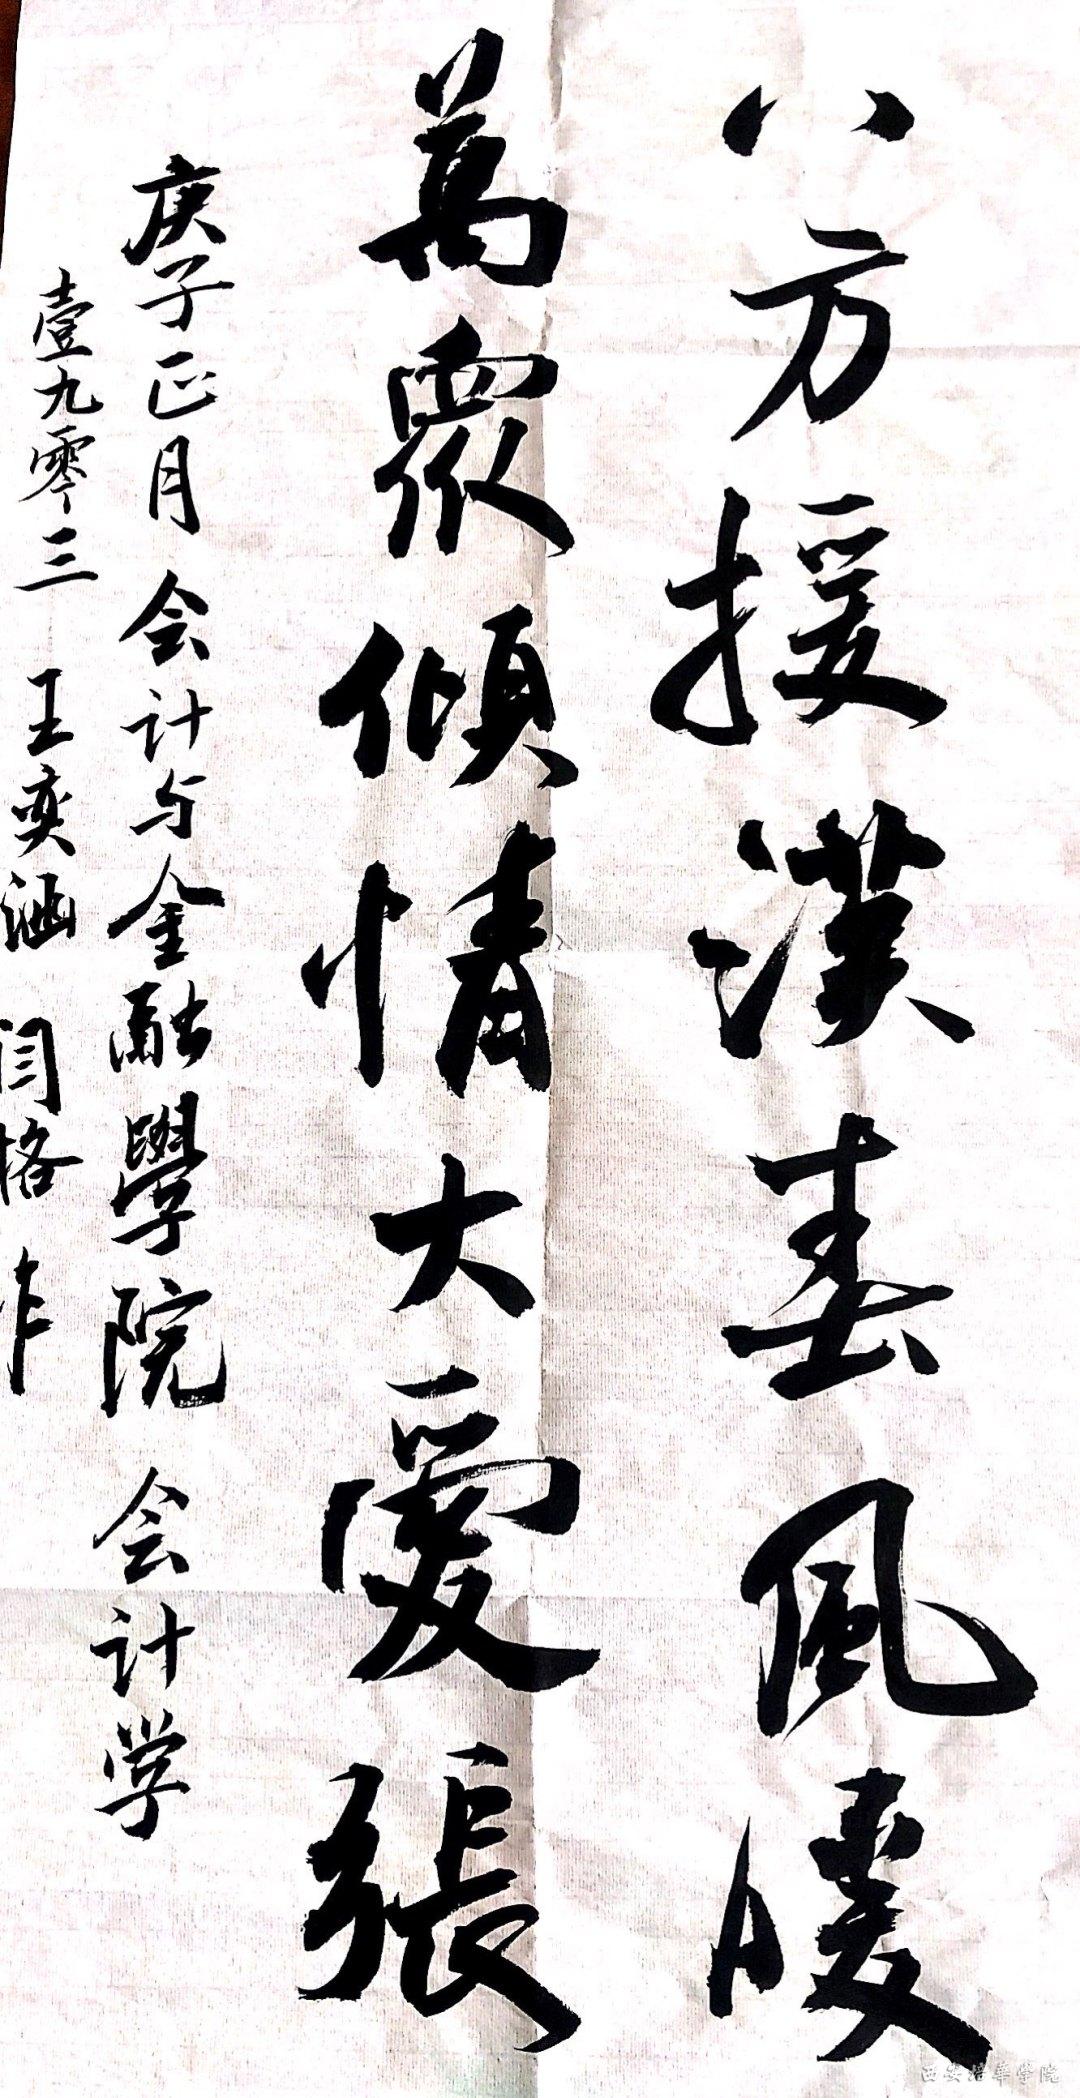 八方援漢春風暖
萬眾傾情大愛張
庚子正月 会计与金融學院 会计学
壹九零三 王奕涵 闫格 作
西安培華学院